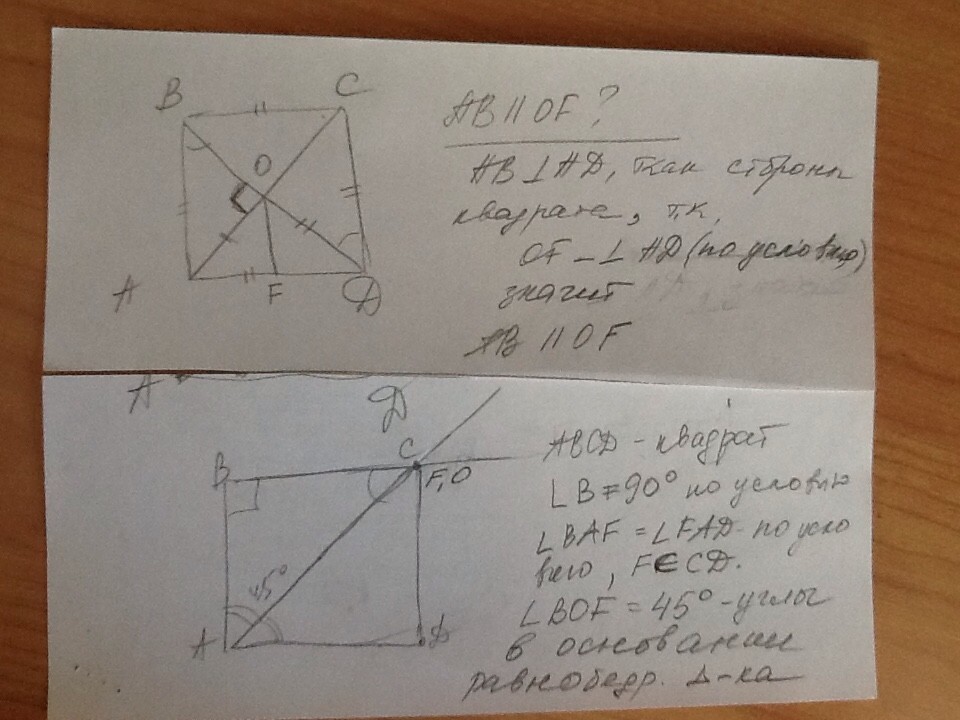 B
C
O
A
F
D
AB || OF ?
AB ⊥ AD, как стороны
квадрата, т.к.
OF – ⊥ AD (по условию)
значит
AB || OF
A
D
B
C
F, O
45°
A
D
ABCD – квадрат
∠B = 90° по условию
∠BAF = ∠FAD по усло
вию, F∈CD.
∠BOF = 45° – углы
в основании
равнобедр. Δ-ка